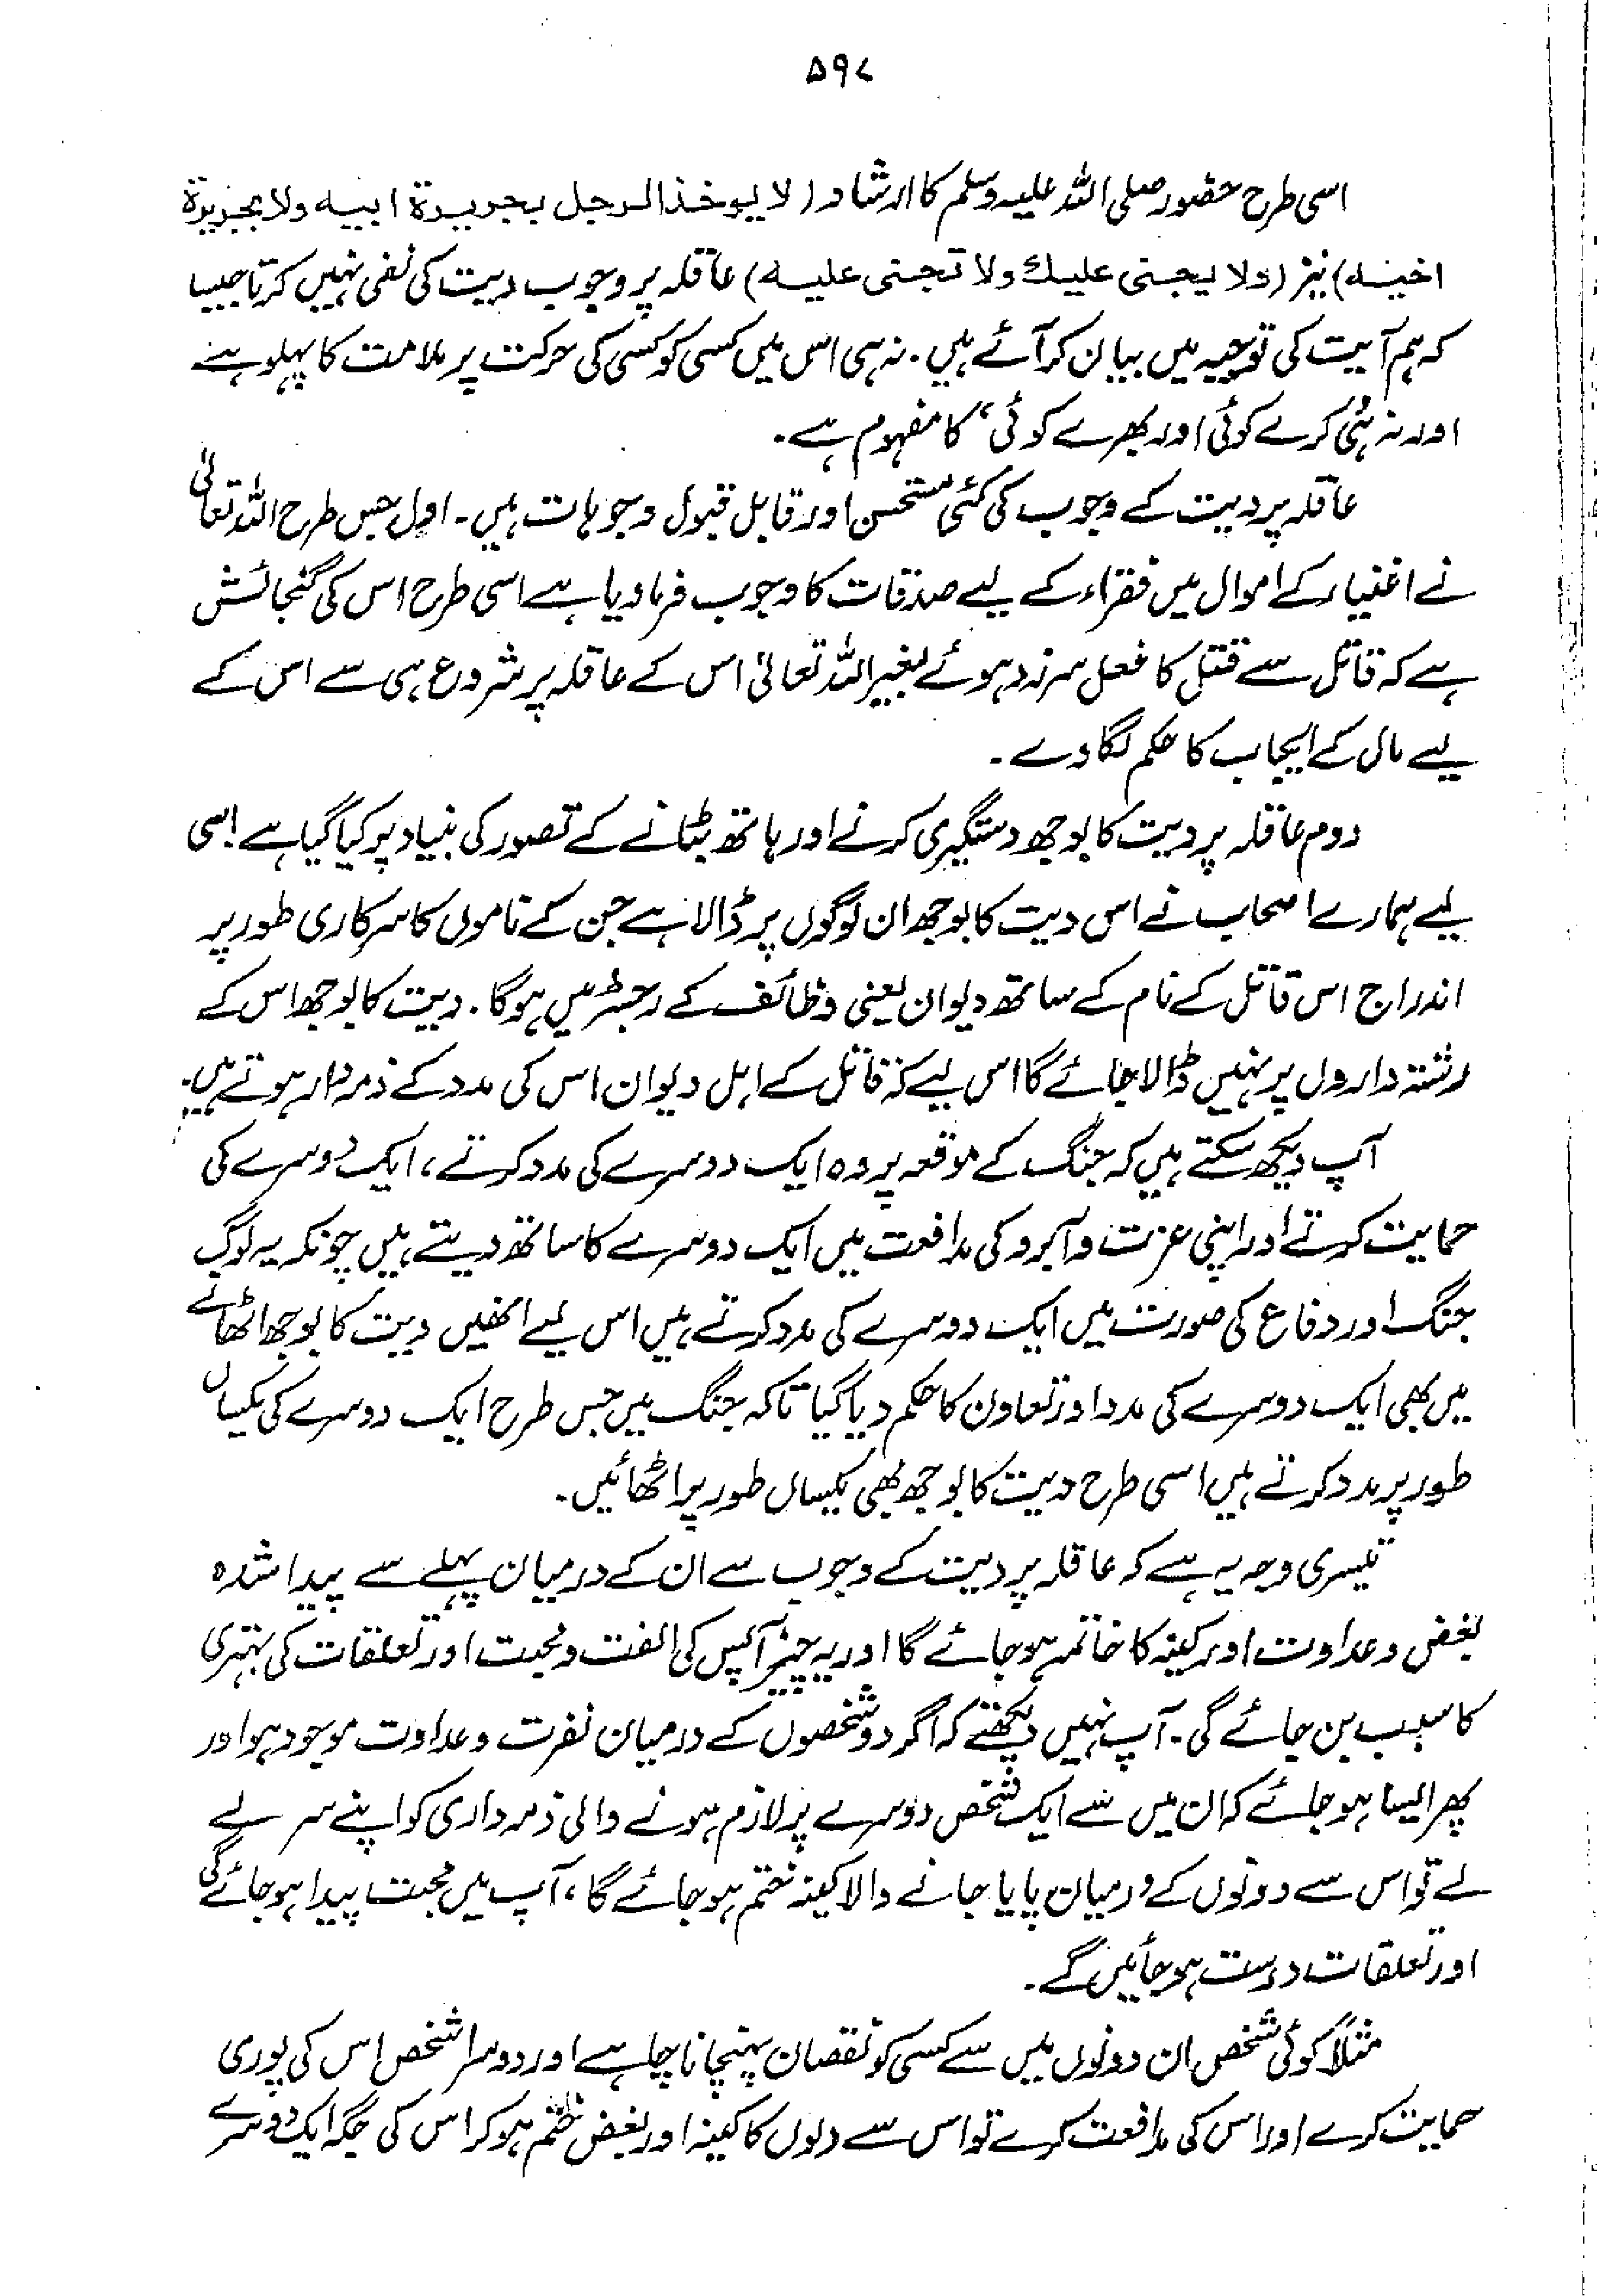 ۵۹۷
اسی طرح حضور صلی اللہ علیہ وسلم کا ارشاد (لا یوخذ الرجل بجریرة ابیہ ولا بجریرة
اخیہ) نیز (ولا یجنی علیك ولا تجنی علیہ) عاقلہ پر وجوب دیت کی نفی نہیں کرتا جیسا
کہ ہم آیت کی توجیہ میں بیان کر آئے ہیں۔ نہ ہی اس میں کسی کو کسی کی حرکت پر ملامت کا پہلو ہے
اور نہ ہی کرے کوئی اور بھرے کوئی، کا مفہوم ہے۔
عاقلہ پر دیت کے وجوب کی کئی مستحسن اور قابل قبول وجوہات ہیں۔ اول جس طرح اللہ تعالیٰ
نے اغنیاء کے اموال میں فقراء کے لیے صدقات کا وجوب فرما دیا ہے اسی طرح اس کی گنجائش
ہے کہ قاتل سے قتل کا فعل سرزد ہوئے بغیر اللہ تعالیٰ اس کے عاقلہ پر شروع ہی سے اس کے
لیے مال کے ایجاب کا حکم لگا دے۔
دوم عاقلہ پر دیت کا بوجھ دستگیری کرنے اور ہاتھ بٹانے کے تصور کی بنیاد پر کیا گیا ہے اسی
لیے ہمارے اصحاب نے اس دیت کا بوجھ ان لوگوں پر ڈالا ہے جن کے ناموں کا سرکاری طور پر
اندراج اس قاتل کے نام کے ساتھ دیوان یعنی وظائف کے رجسٹر میں ہوگا۔ دیت کا بوجھ اس کے
رشتہ داروں پر نہیں ڈالا جائے گا اس لیے کہ قاتل کے اہل دیوان اس کی مدد کے ذمہ دار ہوتے ہیں۔
آپ دیکھ سکتے ہیں کہ جنگ کے موقعہ پر وہ ایک دوسرے کی مدد کرتے، ایک دوسرے کی
حمایت کرتے اور اپنی عزت و آبرو کی مدافعت میں ایک دوسرے کا ساتھ دیتے ہیں چونکہ یہ لوگ
جنگ اور دفاع کی صورت میں ایک دوسرے کی مدد کرتے ہیں اس لیے انھیں دیت کا بوجھ اٹھانے
میں بھی ایک دوسرے کی مدد اور تعاون کا حکم دیا گیا تاکہ جنگ میں جس طرح ایک دوسرے کی یکساں
طور پر مدد کرتے ہیں اسی طرح دیت کا بوجھ بھی یکساں طور پر اٹھائیں۔
تیسری وجہ یہ ہے کہ عاقلہ پر دیت کے وجوب سے ان کے درمیان پہلے سے پیدا شدہ
بغض و عداوت اور کینہ کا خاتمہ ہوجائے گا اور یہ چیز آپس کی الفت و محبت اور تعلقات کی بہتری
کا سبب بن جائے گی۔ آپ نہیں دیکھتے کہ اگر دو شخصوں کے درمیان نفرت و عداوت موجود ہو اور
پھر ایسا ہو جائے کہ ان میں سے ایک شخص دوسرے پر لازم ہونے والی ذمہ داری کو اپنے سر لے
لے تو اس سے دونوں کے درمیان پایا جانے والا کینہ ختم ہو جائے گا، آپ میں محبت پیدا ہو جائے گی
اور تعلقات درست ہو جائیں گے۔
مثلاً کوئی شخص ان دونوں میں سے کسی کو نقصان پہنچانا چاہے اور دوسرا شخص اس کی پوری
حمایت کرے اور اس کی مدافعت کرے تو اس سے دلوں کا کینہ اور بغض ختم ہو کر اس کی جگہ ایک دوسرے